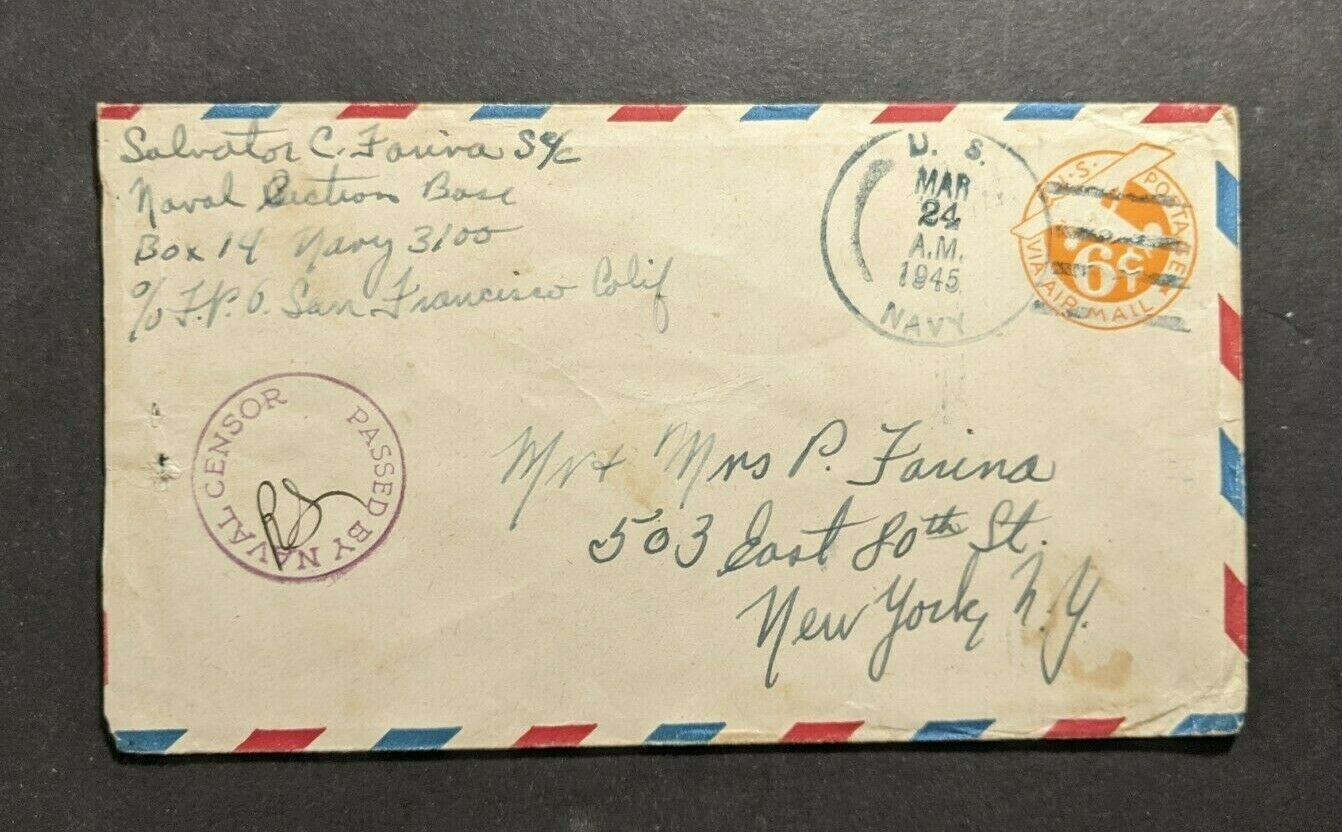 Salvator C. Farina S2/c
Naval Section Base
Box 14 Navy 3100
c/o F.P.O. San Francisco Calif
U. S.
MAR
24
A.M.
1945
NAVY
U.S. POSTAGE
6¢
VIA AIR MAIL
PASSED BY NAVAL CENSOR
Mr + Mrs P. Farina
503 East 80th St.
New York, N.Y.